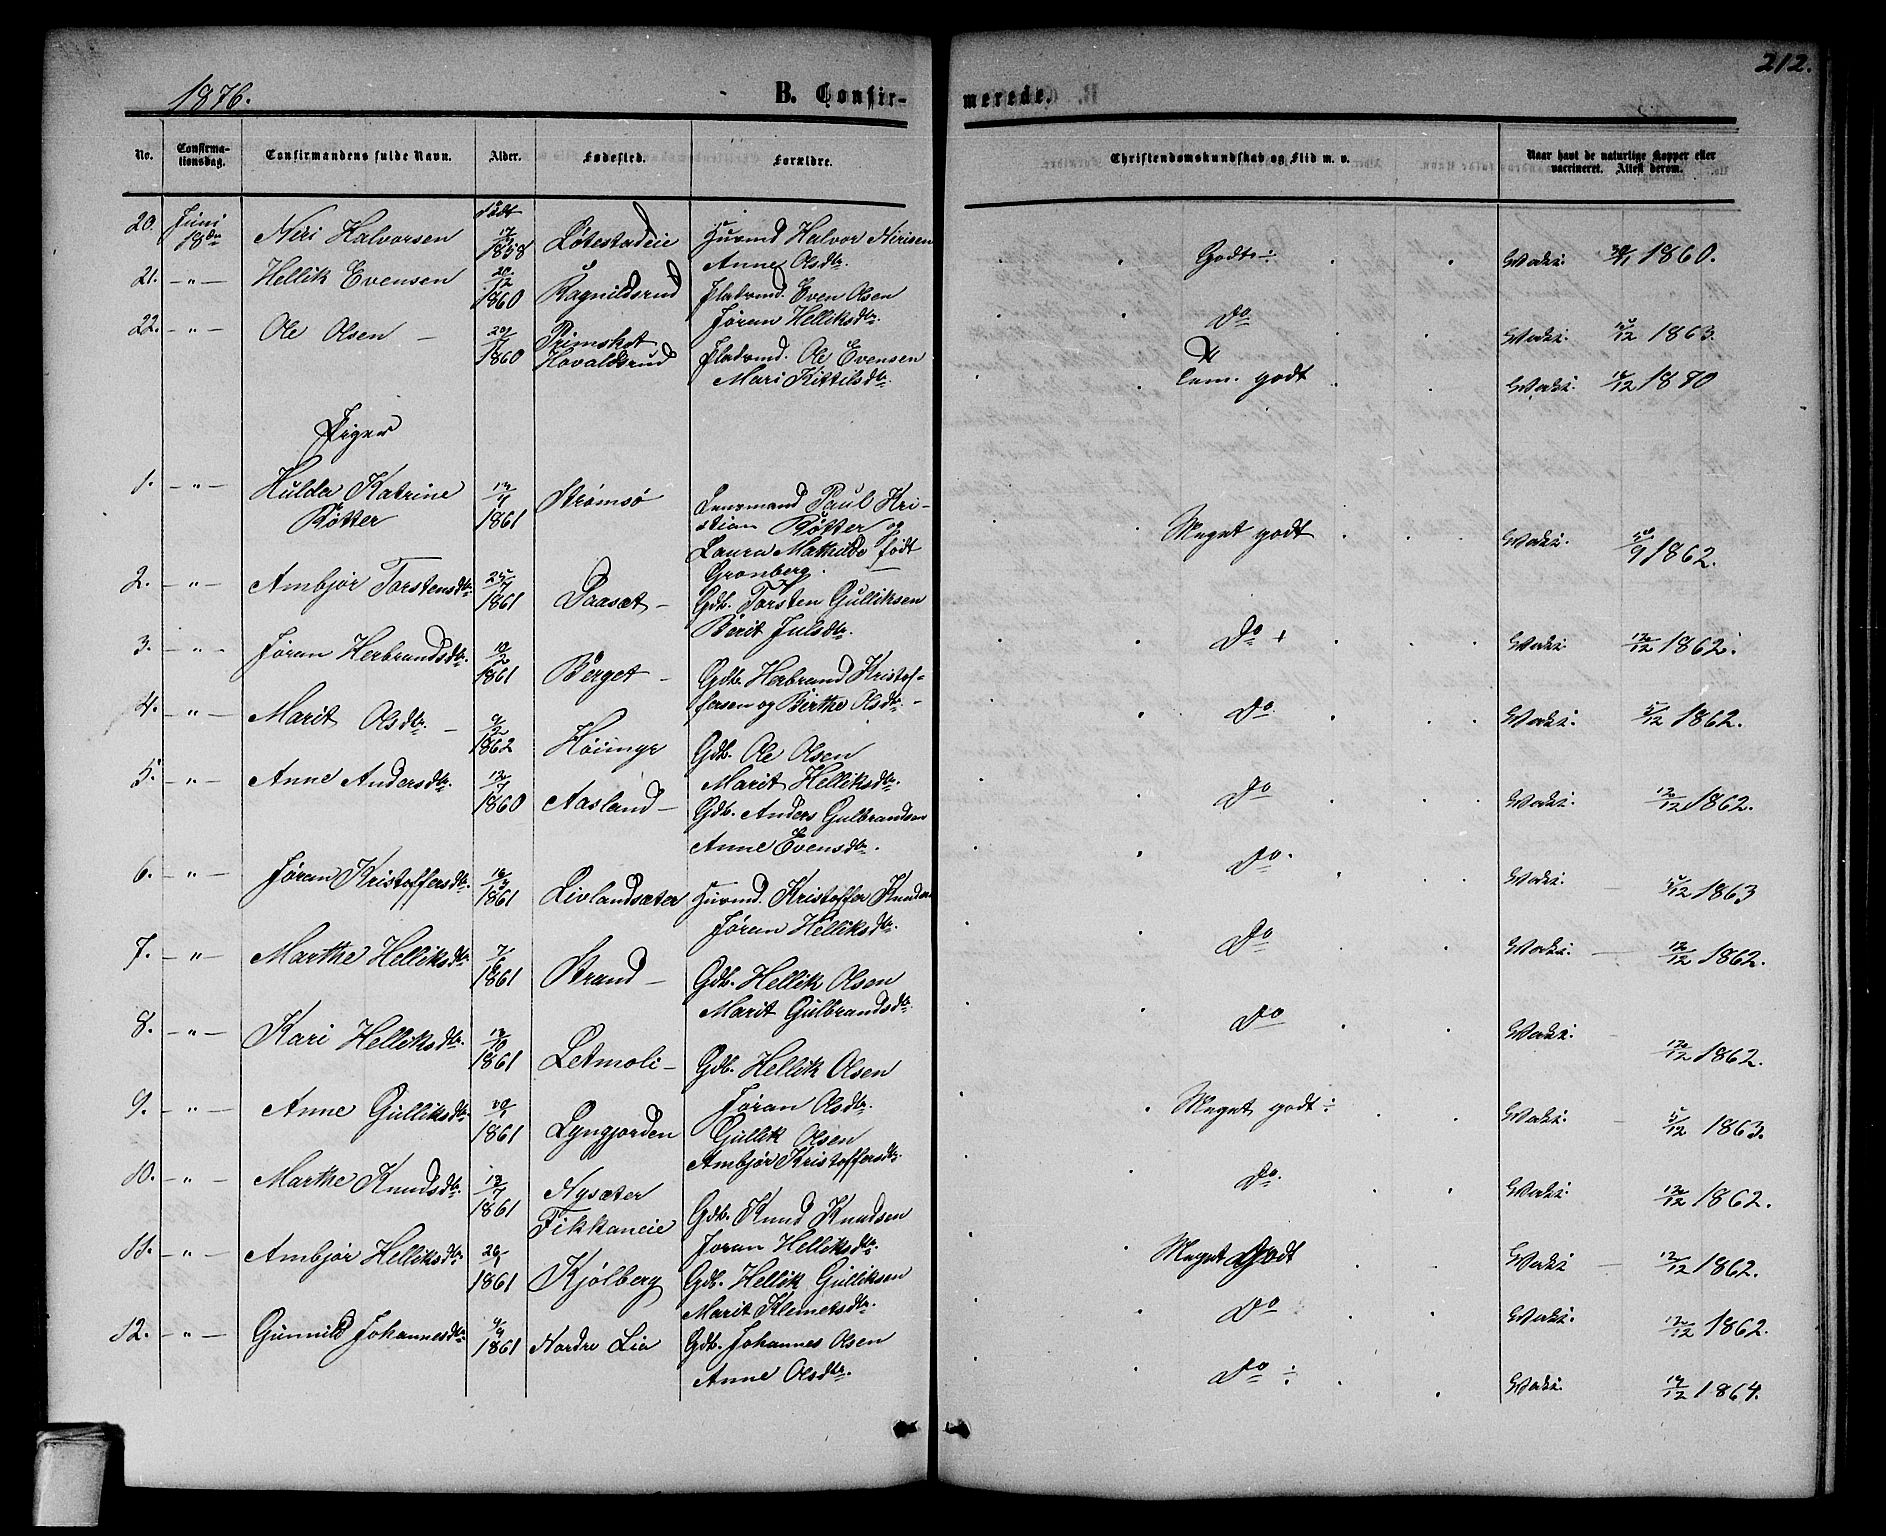 1876.
B. Confir-
merede.
212.
No.
Confirma-
tionsdag.
Confirmandens fulde Navn.
Alder.
Fødested.
Forældre.
Christendomskundskab og Flid m. v.
Naar havt de naturlige Kopper eller
vaccineret. Attest derom.
20. Juni 18de Neri Halvorsen født 1858 Lotestadeie Huusmd Halvor Nerisen
Anne Olsdtr. Godt 1860.
21. -"- Hellik Evensen 20/12 1860 Ragnildsrud Pladsmd. Even Olsen
Jøran Helliksdtr. Do 5/12 1863.
22. -"- Ole Olsen 1860 Hovaldsrud Pladsmd. Ole Evensen
Mari Kittilsdtr. Tem. godt 1870
Piger
1. -"- Hulda Katrine
Røtter 1861 Strømsø Lensmand Paul Kri-
stian Røtter og
Laura Mathilde født
Grønberg. Meget godt 1862.
2. -"- Ambjør Torstensdtr. 25/7 1861 Daaset Gdb. Torsten Gulliksen
Berit Julsdtr. Do 12/12 1862.
3. -"- Jøran Herbrandsdtr. 10/2 1861 Berget Gdb. Herbrand Kristof-
fersen og Birthe Olsdtr. Do 5/12 1862.
4. -"- Marit Olsdtr. 1862 Høiinge Gdb. Ole Olsen
Marit Helliksdtr. Do 12/12 1862.
5. -"- Anne Andersdtr. 1860 Aasland Gdb. Anders Gulbrandsen
Anne Evensdtr. Do. 5/12 1863
6. -"- Jøran Kristoffersdtr. 16/3 1861 Livlandsæter Huusmd. Kristoffer Knudsen
Jøran Helliksdtr. Do 12/12 1862.
7. -"- Marthe Helliksdtr. 7/6 1861 Strand Gdb. Hellik Olsen
Marit Gulbrandsdtr. Do 12/12 1862.
8. -"- Kari Helliksdtr. 1861 Letmoli Gdb. Hellik Olsen
Jøran Olsdtr. Meget godt 5/12 1863.
9. -"- Anne Gulliksdtr. 1861 Lyngjorden Gullik Olsen
Ambjør Kristoffersdtr. Do. 12/12 1862.
10. -"- Marthe Knudsdtr. 1861 Nysæter
Fikkaneie Gdb. Knud Knudsen
Jøran Helliksdtr. Meget Godt 12/12 1862.
11. -"- Ambjør Helliksdtr. 26/1 1861 Kjølberg Gdb. Hellik Gulliksen
Marit Klemetsdtr. Do 12/12 1862.
12. -"- Gunnild Johannesdtr. 1861 Nordre Lia Gdb. Johannes Olsen
Anne Olsdtr. Do 1864.